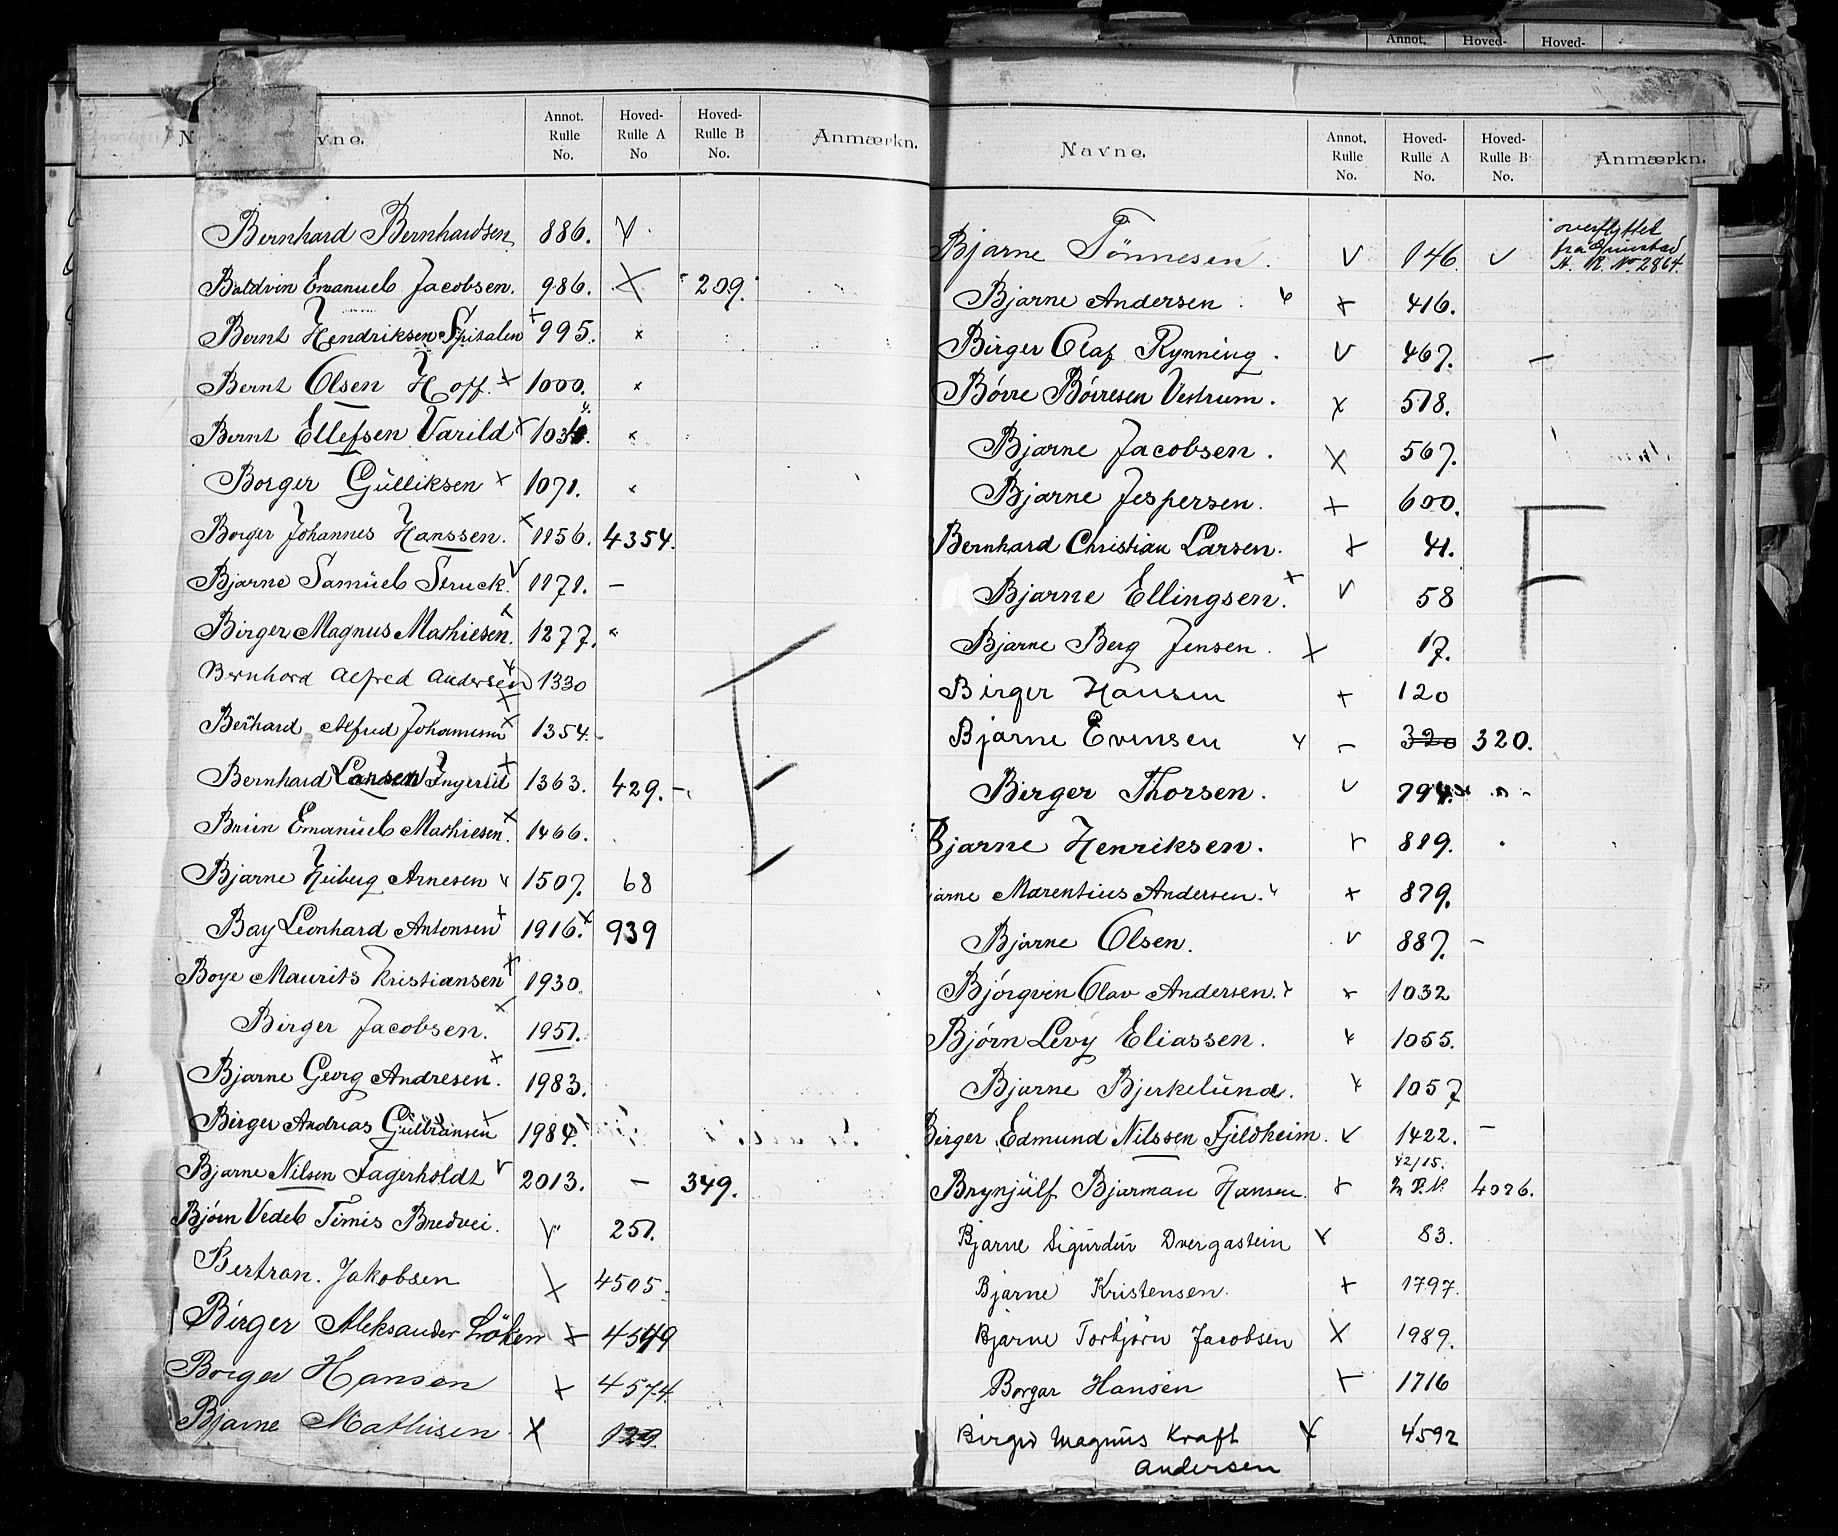 Annot. Hoved- Hoved-
N vne. Annot. Rulle No. Hoved-Rulle A No Hoved-Rulle B No. Anmærkn.
Bernhard Bernhardsen 886. V.
Baldvin Emanuel Jacobsen. 986. X 209.
Bernt Hendriksen Spitalen x 995. x
Bernt Olsen Hoff. x 1000. x
Bernt Ellefsen Varild x 1034. x
Borger Gulliksen x 1071. x
Borger Johannes Hanssen. x 1156. 4354.
Bjarne Samuel Struck. V 1171. –
Birger Magnus Mathiesen. x 1277. x
Bernhard Alfred Andersen 1330
Bernhard Alfred Johannesen x 1354.
Bernhard Larsen Ingerlid x 1363. 429. –
Bruun Emanuel Mathiesen. x 1466.
Bjarne Heiberg Arnesen 1507. 68
Bay Leonhard Antonsen x 1916. x 939
Boye Maurits Kristiansen x 1930.
Birger Jacobsen. x 1951.
Bjarne Georg Andresen. x 1983.
Birger Andreas Gulbransen x 1984.
Bjarne Nilsen Fagerholdt V 2013. – 349.
Bjørn Vedel Timis Bredvei. V 251.
Bertran. Jakobsen X 4505.
Birger Aleksander Löken x 4549
Borger Hansen x 4574.
Bjarne Mathisen. X 129.
Navne. Annot. Rulle No. Hoved-Rulle A No. Hoved-Rulle B No. Anmærkn.
Bjarne Tönnesen. V 146. V overflyttet
fra Grimstad
A. R. No 2864.
Bjarne Andersen x 416.
Birger Olaf Rynning. V 467. –
Börre Börresen Vestrum. x 518.
Bjarne Jacobsen. X 567.
Bjarne Jespersen. x 600.
Bernhard Christian Larsen. x 41.
Bjarne Ellingsen. x V 58
Bjarne Berg Jensen. X 17.
Birger Hansen x 120
Bjarne Evensen – 320 320.
Birger Thorsen. V 794.
Bjarne Henriksen. x 819.
jarne Marentius Andersen. x 879.
Bjarne Olsen. V 887. –
Björgvin Olav Andersen. x x 1032
Bjørn Levy Eliassen. x 1055.
Bjarne Bjerkelund. x 1057
Birger Edmund Nilssen Fjeldheim. V 1422. –
Brynjulf Bjarman Hansen. x 42/15. 4026.
Bjarne Sigurdur Dvergastein x 83.
Bjarne Kristensen. x 1797.
Bjarne Torbjörn Jacobsen X 1989.
Borgar Hansen x 1716
Birger Magnus Kraft X 4592
Andersen
F
F